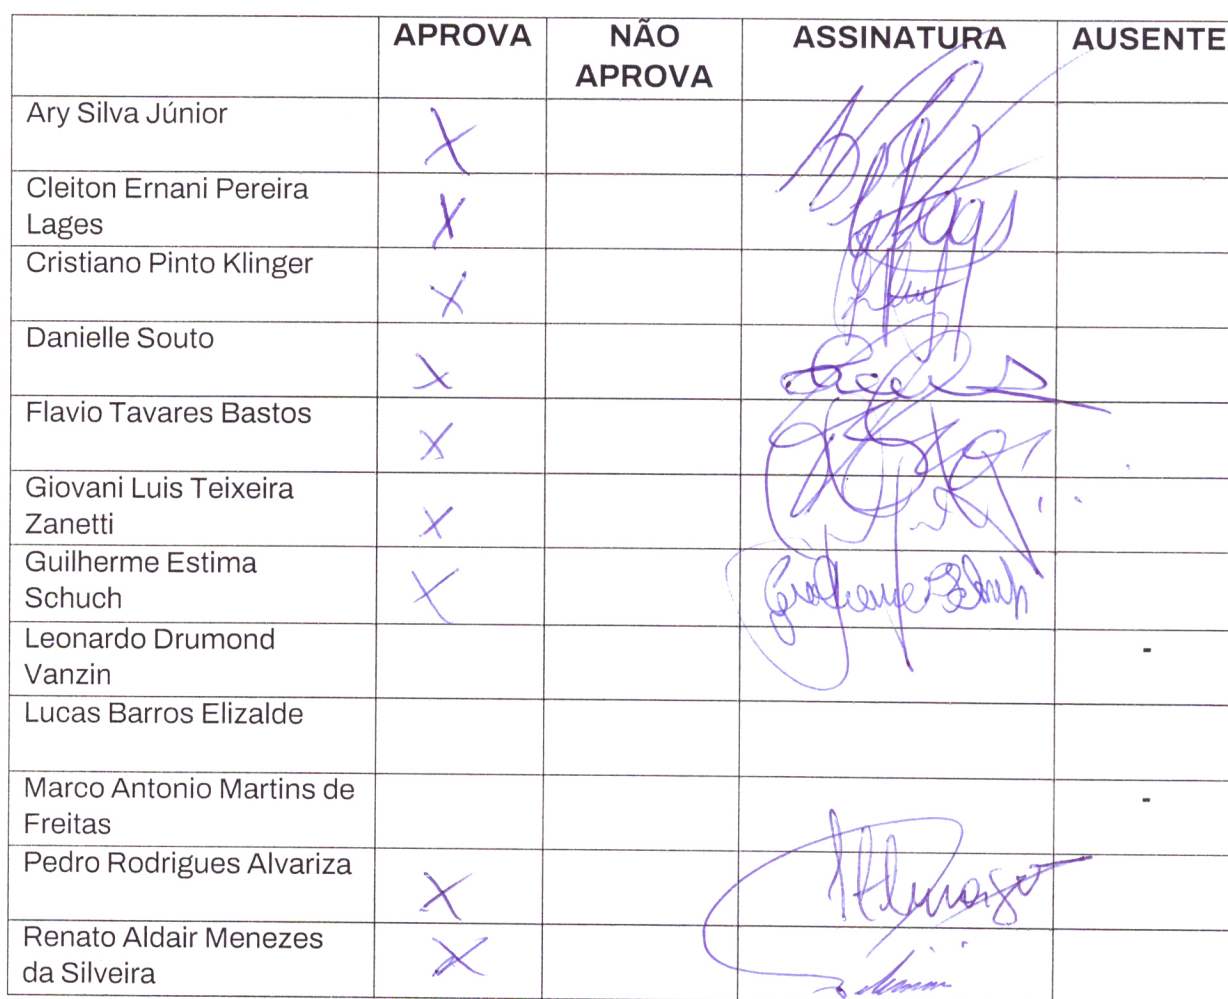 APROVA NÃO APROVA ASSINATURA AUSENTE
Ary Silva Júnior X
Cleiton Ernani Pereira
Lages X
Cristiano Pinto Klinger X
Danielle Souto X
Flavio Tavares Bastos X
Giovani Luis Teixeira
Zanetti X
Guilherme Estima
Schuch X Guilherme E Schuch
Leonardo Drumond
Vanzin -
Lucas Barros Elizalde
Marco Antonio Martins de
Freitas -
Pedro Rodrigues Alvariza X
Renato Aldair Menezes
da Silveira X